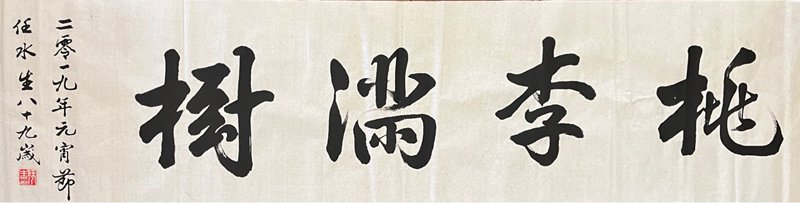 桃李滿樹
二零一九年元宵節
任水生八十九歲